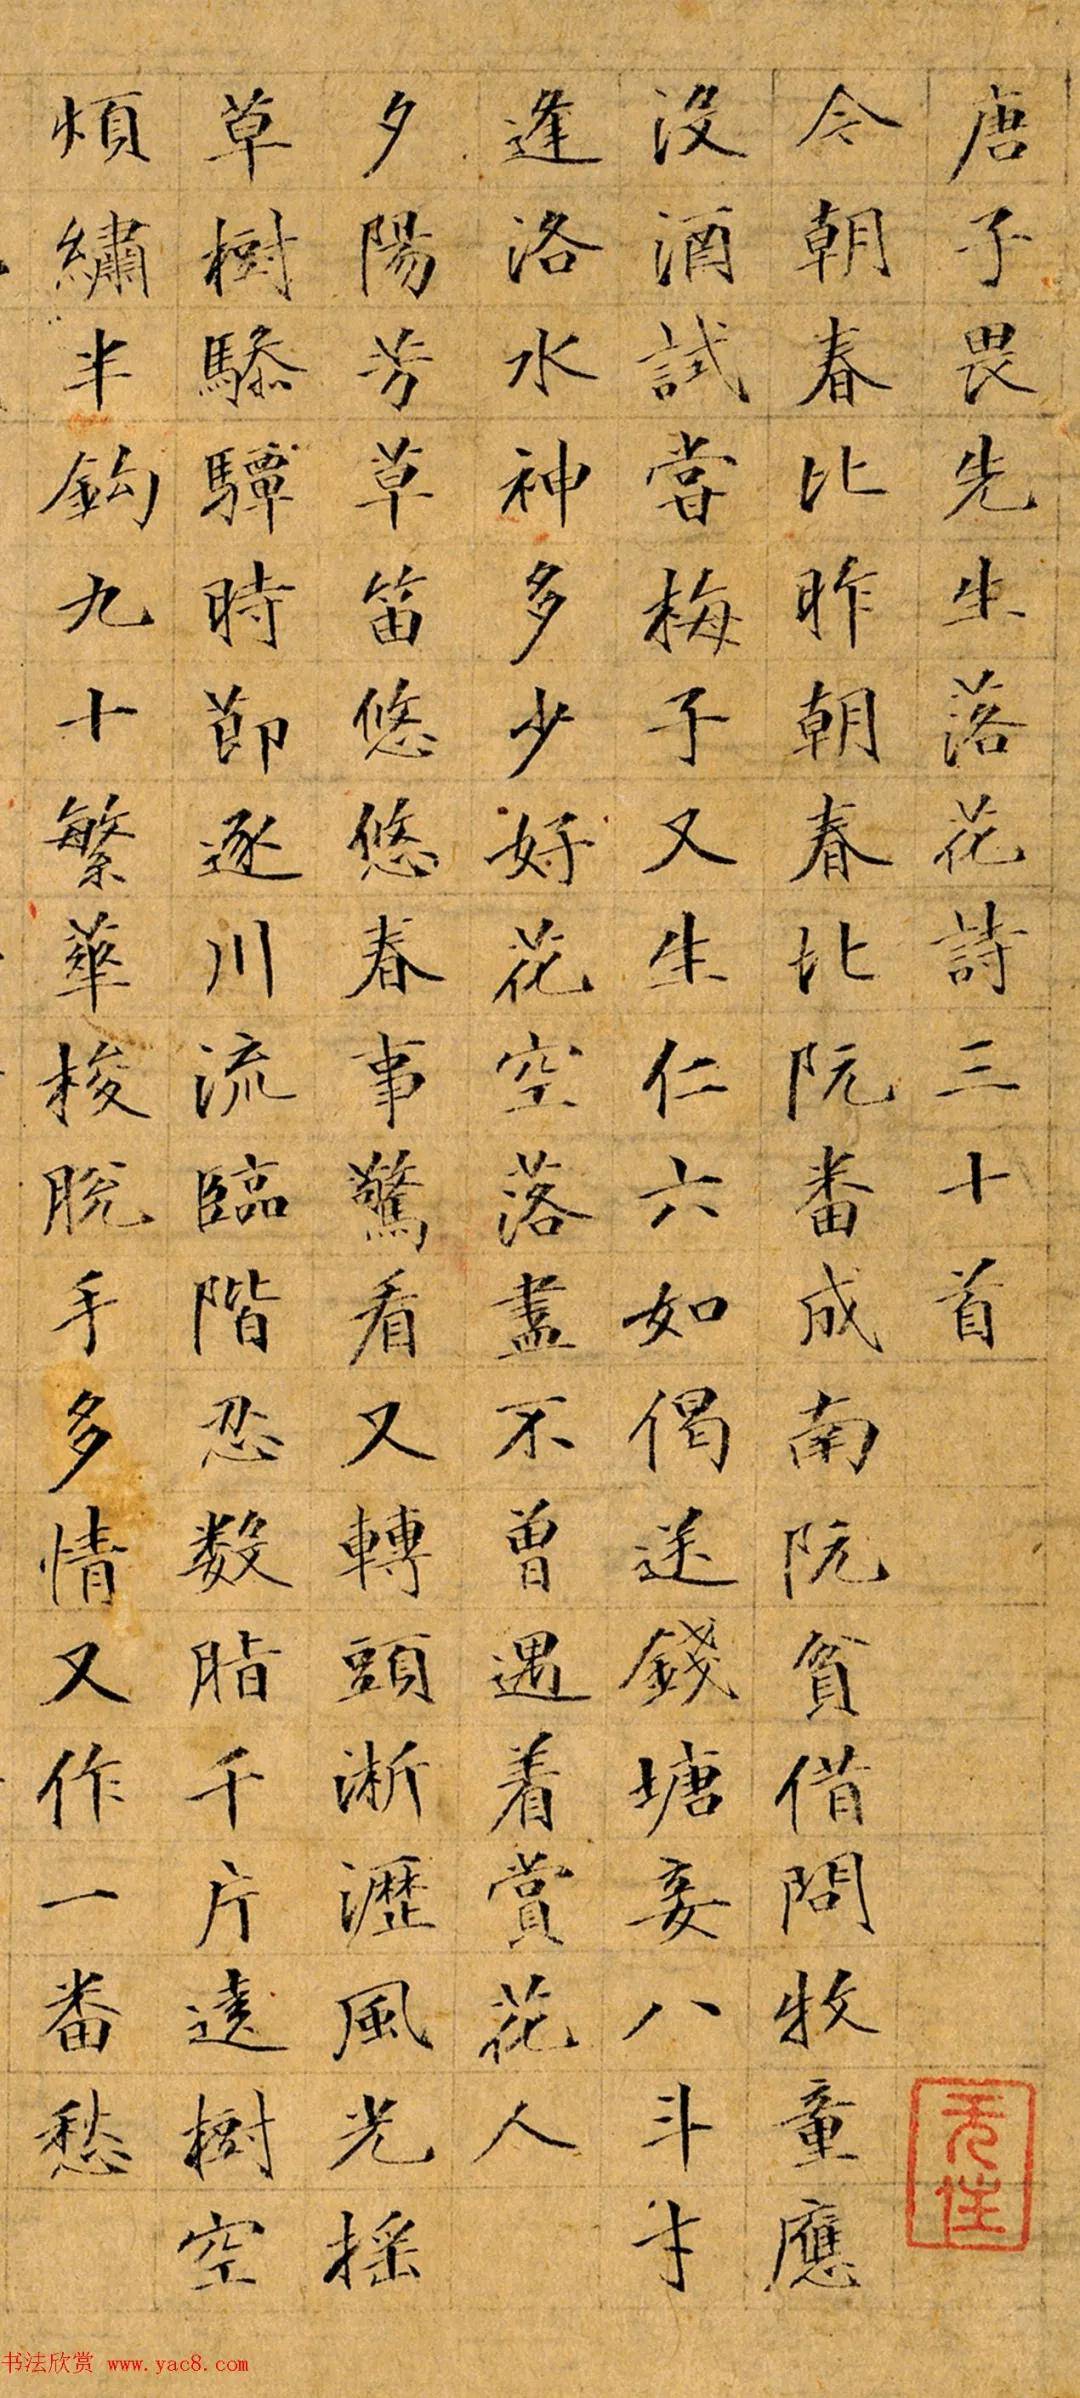 唐子畏先生落花詩三十首
今朝春比昨朝春北阮番成南阮貧借問牧童應
沒酒試嘗梅子又生仁六如偈送錢塘妾八斗才
逢洛水神多少好花空落盡不曾遇着賞花人
夕陽芳草笛悠悠春事驚看又轉頭淅瀝風光搖
草樹驂驔時節逐川流臨階忍數脂千片遶樹空
煩繡半鈎九十繁華梭脫手多情又作一番愁
无住
书法欣赏 www.yac8.com